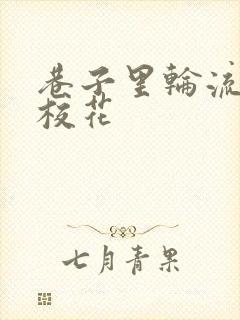 巷子里輪流
校花
七月青果